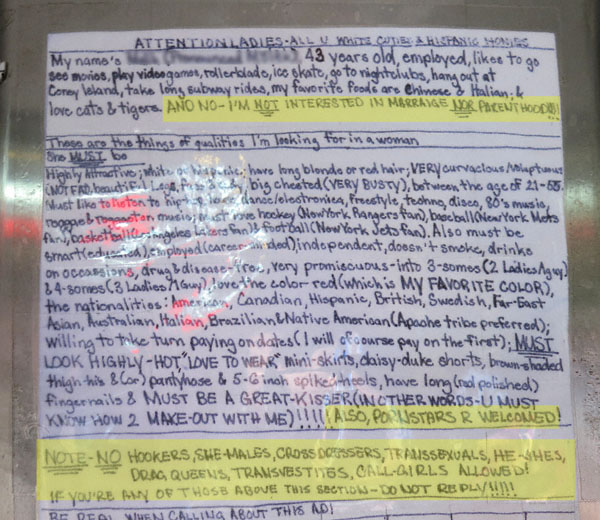 ATTENTION LADIES-ALL U WHITE CUTIES & HISPANIC HONIES
My name's 43 years old, employed, likes to go
see movies, play videogames, rollerblade, ice skate, go to nightclubs, hang out at
Coney Island, take long subway rides, my favorite foods are Chinese & Italian; &
love cats & tigers. AND NO-I'M NOT INTERESTED IN MARRAIGE NOR PARENTHOOD!!!
These are the things of qualities I'm looking for in a woman
She MUST be
Highly Attractive; white or hispanic; have long blonde or red hair; VERY curvacious/voluptuous
(NOT FAT) beautiful Legs, Face & body; big chested (VERY BUSTY), between the age of 21-
Must like to listen to hip-hop, dance/electronica, Freestyle, techno, disco, 80's music,
reggae & reggaeton music; must love hockey (NewYork Rangers fan), baseball (NewYork Mets
fan), basketball (Los Angeles Lakers fan) & football (NewYork Jets fan). Also must be
smart (educated), employed (career-minded), independent, doesn't smoke, drinks
on occassions, drug & disease free, very promiscuous-into 3-somes (2 Ladies/1 guy)
& 4-somes (3 Ladies/1 guy), love the color red (which is MY FAVORITE COLOR),
the nationalities: American, Canadian, Hispanic, British, Swedish, Far-East
Asian, Australian, Italian, Brazilian & Native American (Apache tribe preferred);
willing to take turn paying on dates (I will of course pay on the first); MUST
LOOK HIGHLY-HOT, "LOVE TO WEAR" mini-skirts, daisy-duke shorts, brown-shaded
thigh-his & (or) pantyhose & 5-6 inch spiked heels, have long (red polished)
fingernails & MUST BE A GREAT-KISSER (IN OTHER WORDS-U MUST
KNOW HOW 2 MAKE-OUT WITH ME)!!!! ALSO, PORNSTARS R WELCOMED!
NOTE-NO HOOKERS, SHE-MALES, CROSS DRESSERS, TRANSSEXUALS, HE-SHES,
DRAG QUEENS, TRANSVESTITES, CALL-GIRLS ALLOWED!
IF YOU'RE ANY OF THOSE ABOVE THIS SECTION-DO NOT REPLY!!!!!
BE REAL WHEN CALLING ABOUT THIS AD!